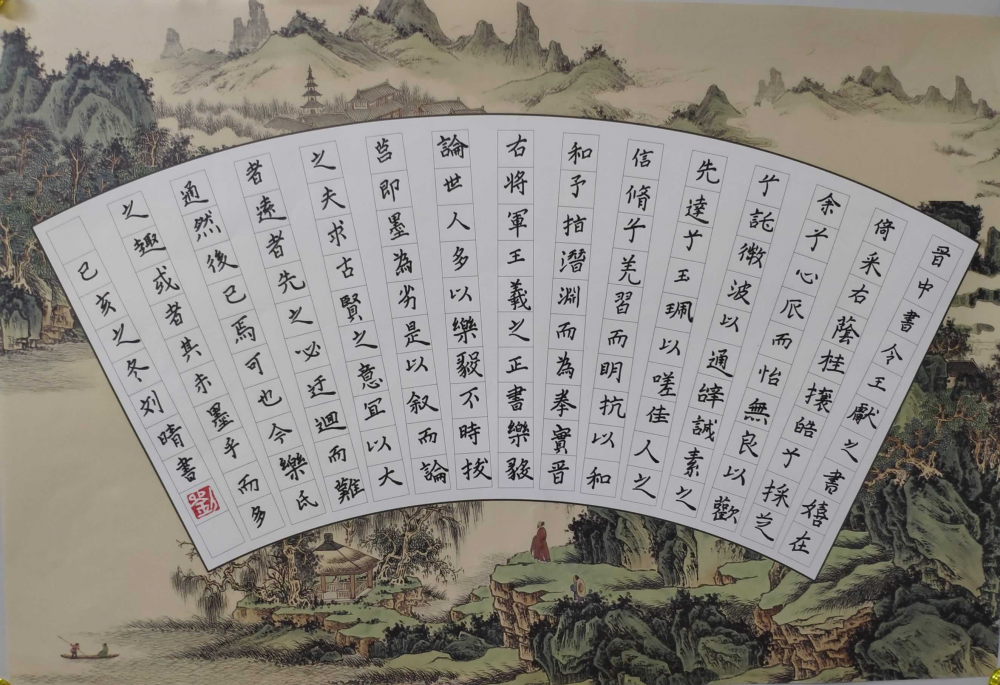 晋中書令王獻之書僖在
倚采右蔭桂攘皓兮採芝
余兮心而怡無良以歡
兮託微波以通辭誠素之
先達兮玉珮以嗟佳人之
信脩兮羌習而明抗以和
和予指潛淵而為拳實晋
右將軍王羲之正書樂毅
論世人多以樂毅不時拔
莒即墨為劣是以叙而論
之夫求古賢之意宜以大
者遠者先之必迂迴而難
通然後已焉可也今樂氏
之趣或者其未墨乎而多
己亥之冬刘晴書